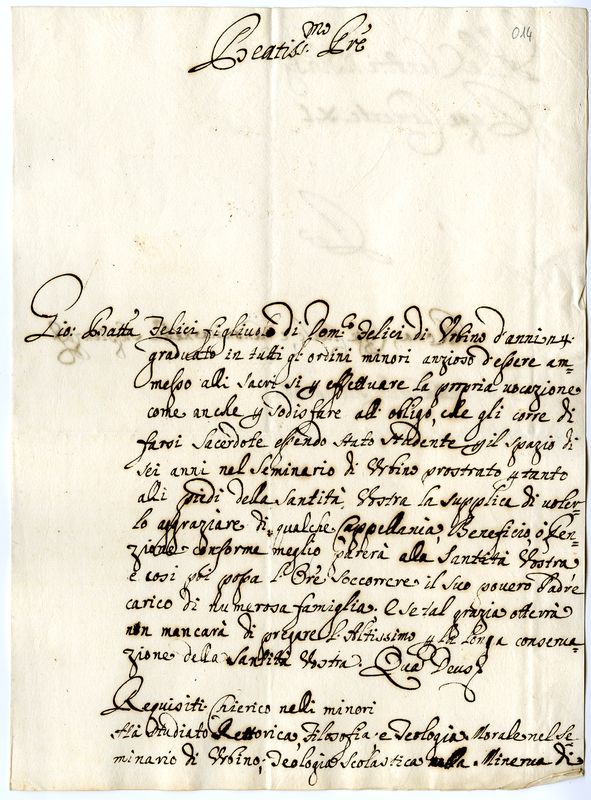 014
Beatis.mo Pre
Gio: Batta Felici figliuolo di Dom.co Felici di Urbino d'anni 24
graduato in tutti gl'ordini minori anzioso d'essere am=
messo alli sacri si p effettuare la propria uocazione
come anche p sodisfare all'obligo, che gli corre di
farsi Sacerdote essendo stato studente p il spazio di
sei anni nel Seminario di Urbino prostrato p tanto
alli piedi della Santità Vostra la supplica di uoler=
lo aggraziare di qualche Cappellania, Beneficio, ò Pen=
zione conforme meglio parerà alla Santità Vostra
e così poi possa Soccorrere il suo pouero Padre
carico di numerosa famiglia. E se tal grazia otterrà
non mancarà di pregare l'Altissimo p la longa conserua=
zione della Santità Vostra. Qua Deus
Requisiti. Chierico nelli minori
Hà studiato Rettorica, Filosofia e Teologia Morale nel Se=
minario di Urbino; Teologia Scolastica nella Minerva di